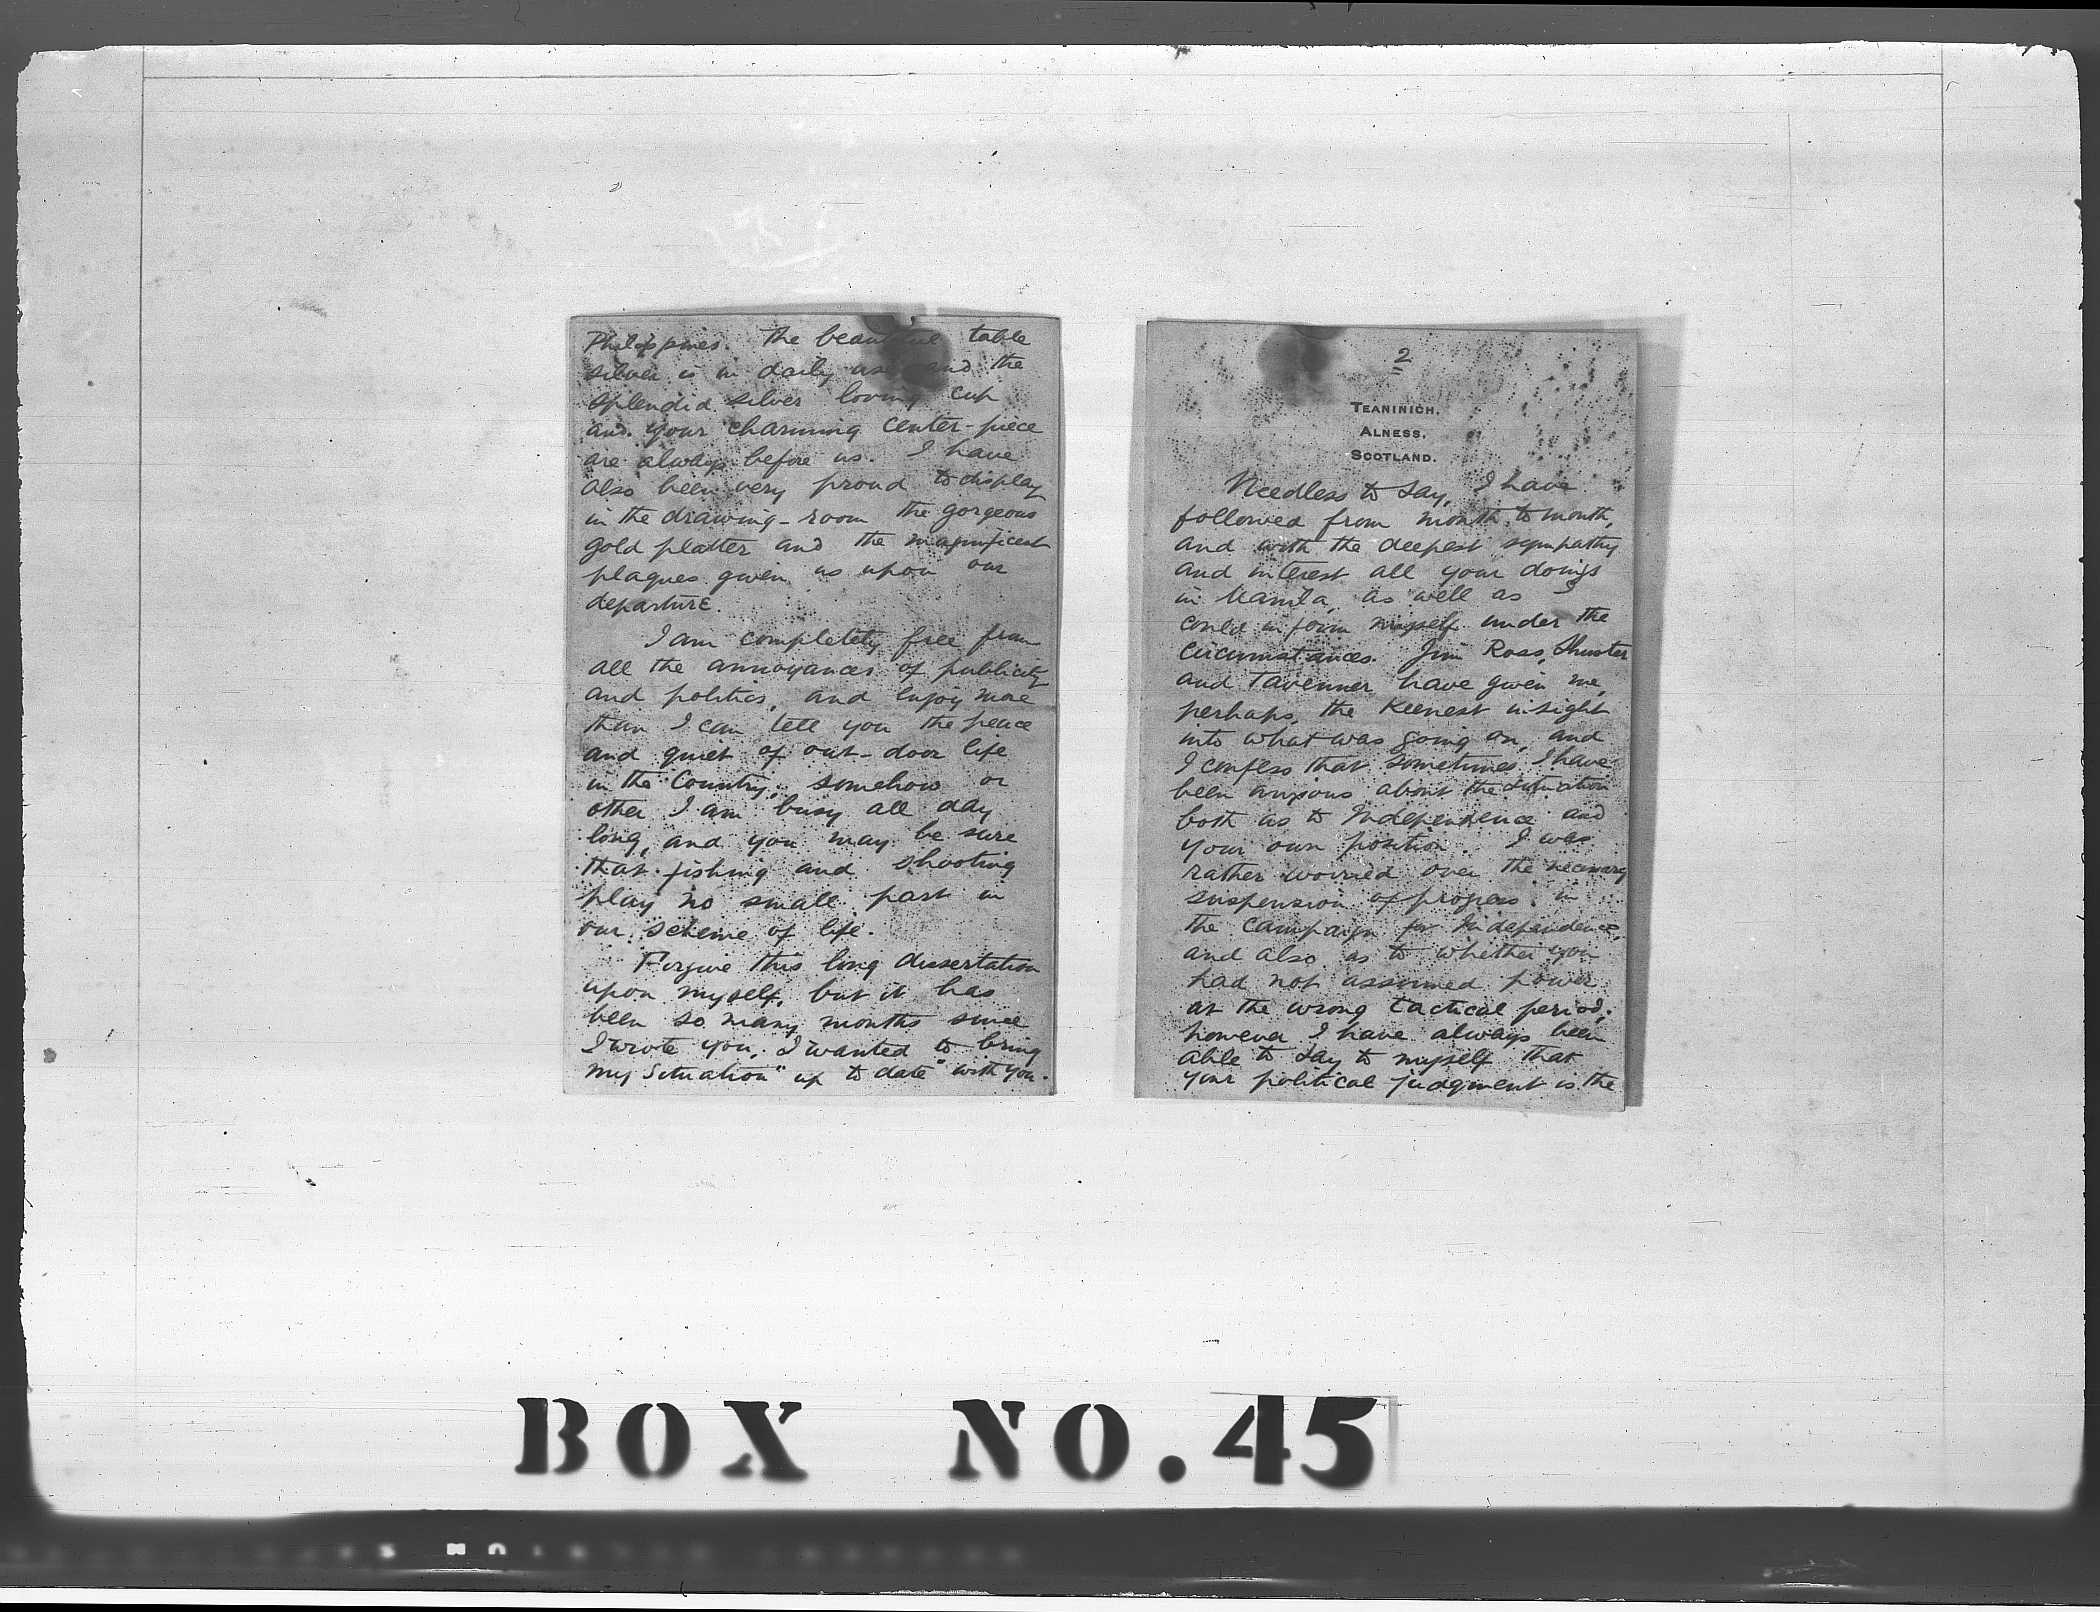 Philippines. The beautiful table
silver is in daily use and the
splendid silver loving cup
and your charming center-piece
are always before us. I have
also been very proud to display
in the drawing-room the gorgeous
gold platter and the magnificent
plaques given us upon our
departure.
I am completely free from
all the annoyances of publicity
and politics, and enjoy more
than I can tell you the peace
and quiet of out-door life
in the Country; somehow or
other I am busy all day
long, and you may be sure
that fishing and shooting
play no small part in
our scheme of life.
Forgive this long dissertation
upon myself, but it has
been so many months since
I wrote you, I wanted to bring
my situation "up to date" with you.
2
TEANINICH.
ALNESS.
SCOTLAND.
Needless to say, I have
followed from month to month,
and with the deepest sympathy
and interest all your doings
in Manila, as well as I
could inform myself under the
circumstances. Jim Ross, Shuster
and Tavenner have given me,
perhaps, the keenest insight
into what was going on, and
I confess that sometimes I have
been anxious about the situation
both as to Independence and
your own position. I was
rather worried over the necessary
suspension of progress in
the campaign for Independence,
and also as to whether you
had not assumed power
at the wrong tactical period;
however I have always been
able to say to myself that
your political judgment is the
BOX NO. 45